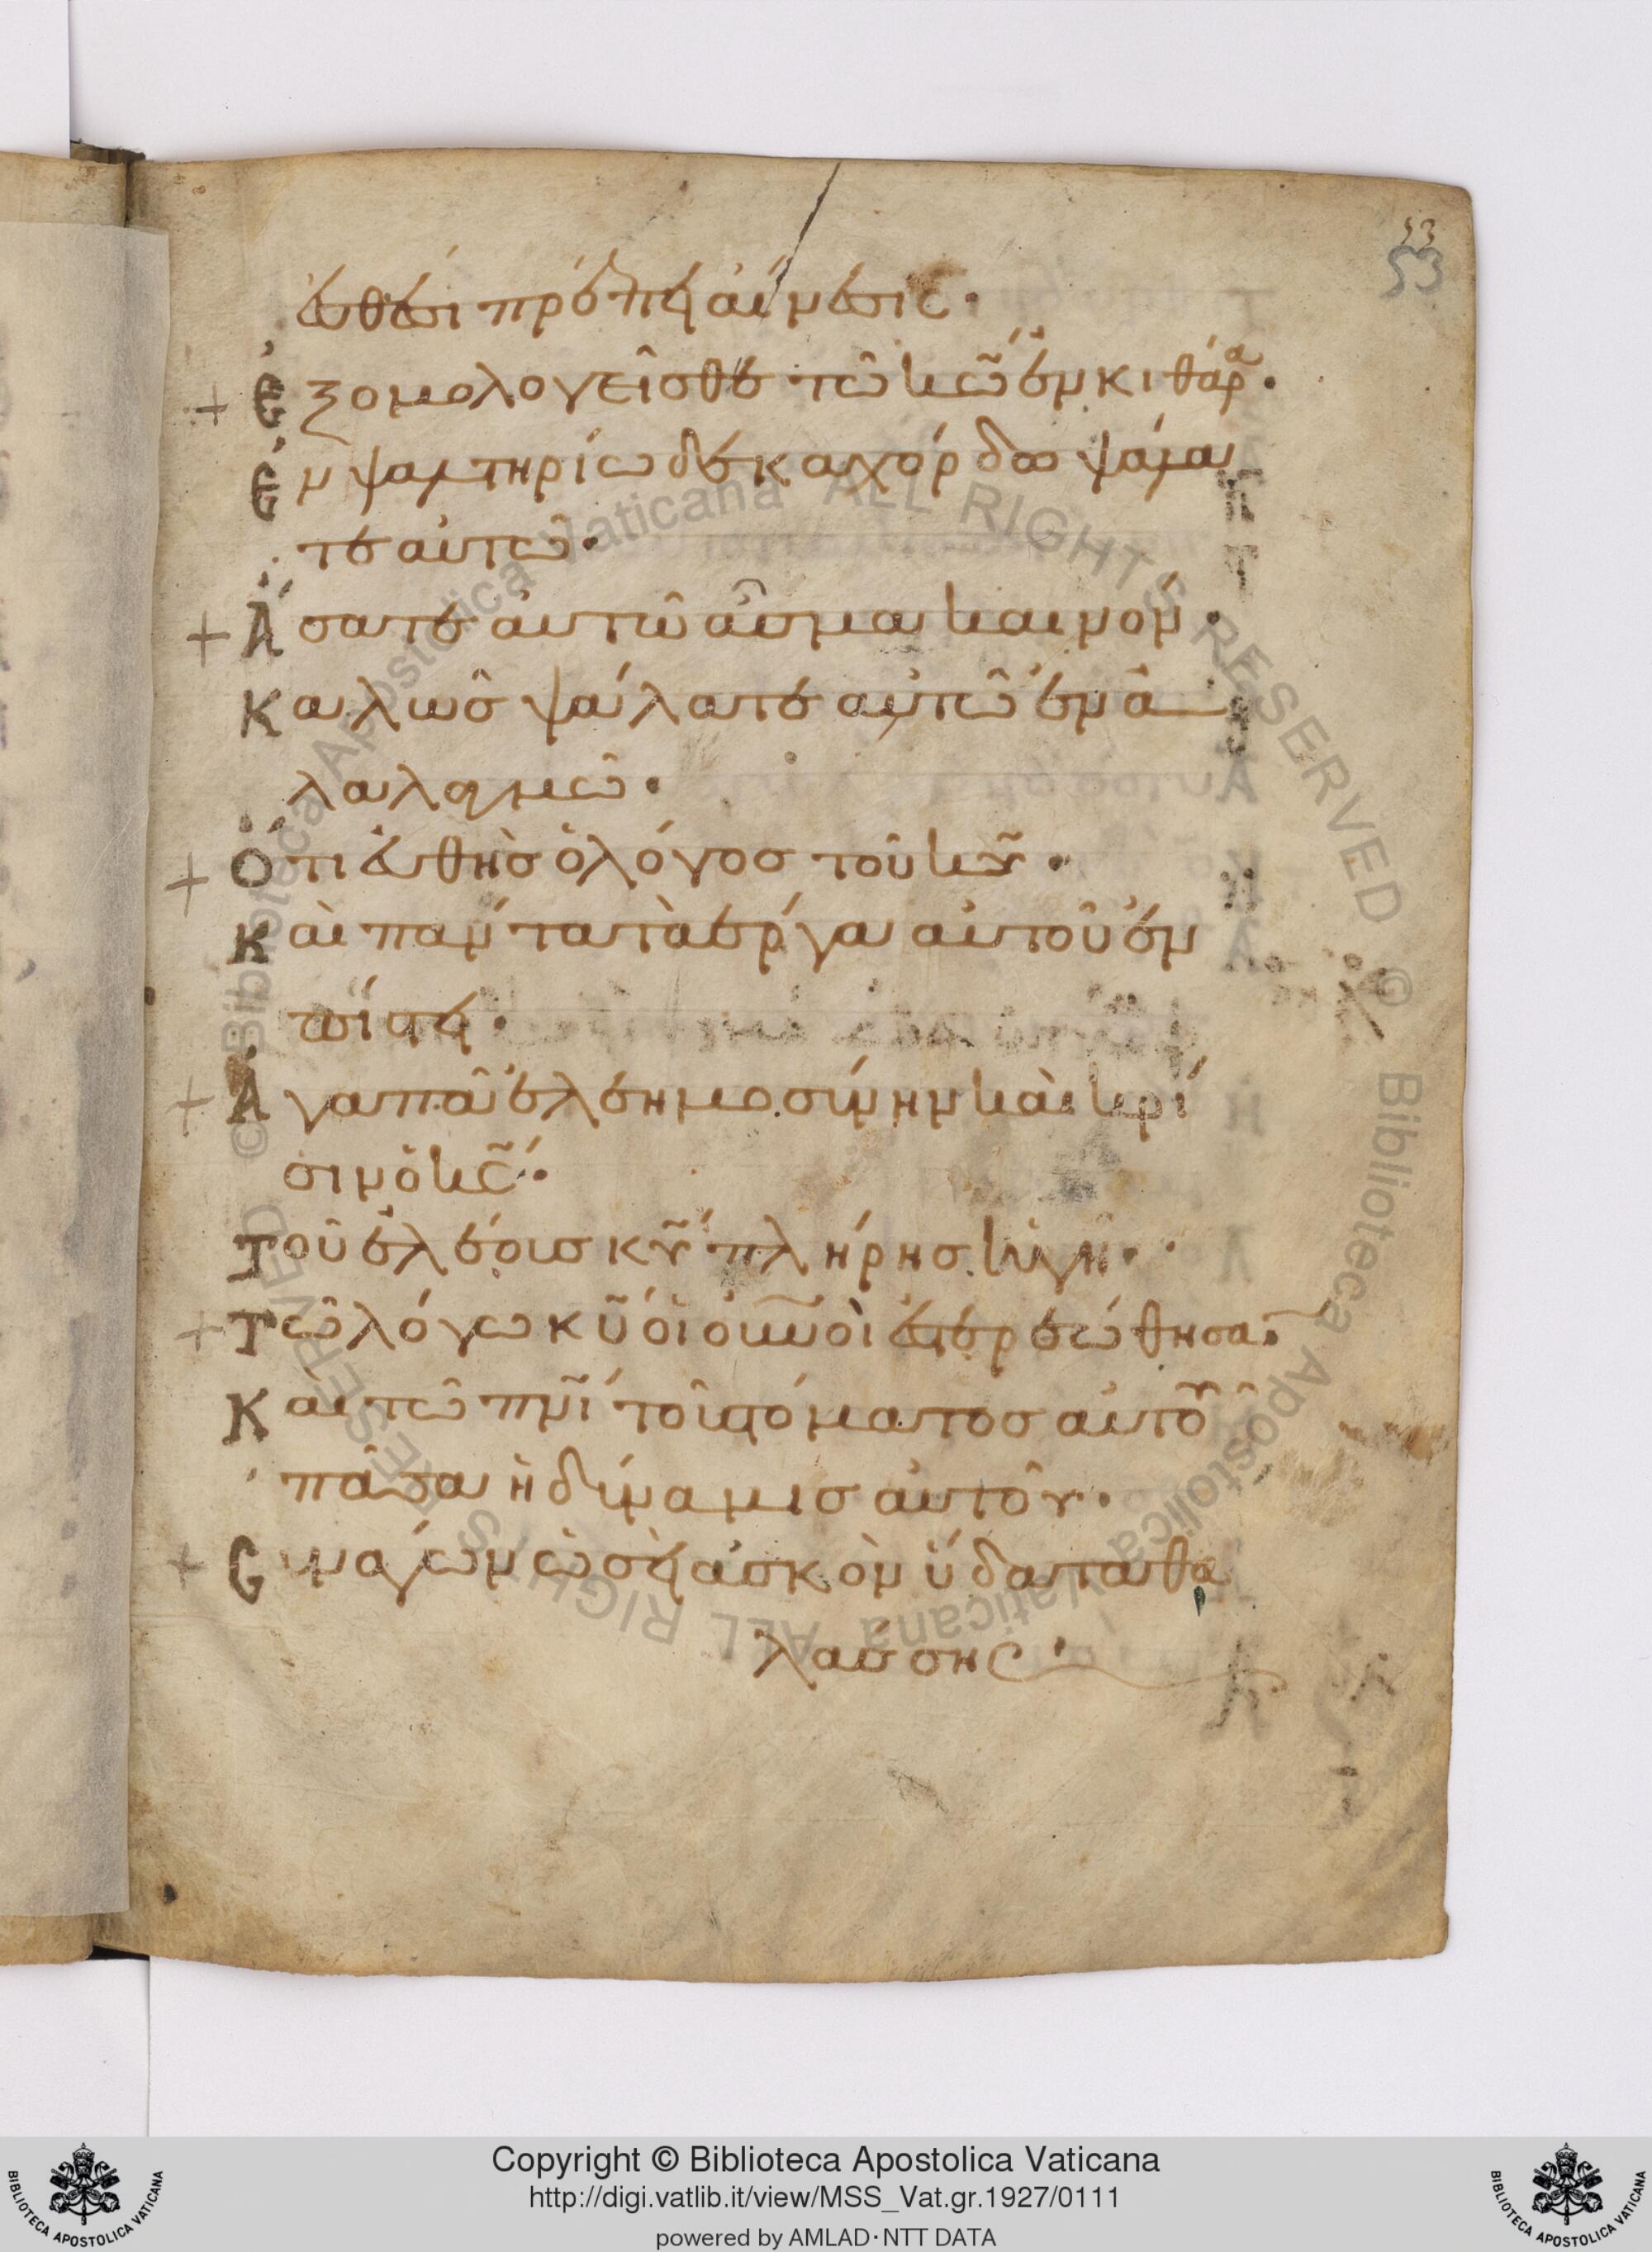 53
53
ἐυθέσι πρέπει αίνεσις.
Ἐξομολογεῖσθε τῶ κῶ ἐν κιθάρα.
Ἐν ψαλτηρίω δεκαχόρδω ψάλα
τε αὐτῶ.
Ἄσατε αὐτῶ ἆσμα καινόν.
Καλῶσ ψάλατε αὐτῶ ἐν ἀ
λαλαγμῶ.
Ὅτι ἐυθὴσ ὁ λόγοσ τοῦ κυ.
Καὶ πάντα τὰ ἔργα αὐτοῦ ἐν
πίστει.
Ἀγαπᾶ ἐλεημοσύνην καὶ κρί
σιν ὁ κς.
Τοῦ ἐλέουσ κυ πλήρησ ἡ γῆ.
Τῶ λόγω κυ οἱ οὐνοὶ ἐστερεώθησαν
Καὶ τῶ πνι τοῦ στόματοσ αὐτοῦ
πᾶσα ἡ δύναμισ αὐτοῦ.
Συνάγων ὡσεὶ ἀσκὸν ὕδατα θα
λάσσης
© Biblioteca Apostolica Vaticana ALL RIGHTS RESERVED © Biblioteca Apostolica Vaticana ALL RIGHTS RESERVED
Copyright © Biblioteca Apostolica Vaticana
http://digi.vatlib.it/view/MSS_Vat.gr.1927/0111
powered by AMLAD·NTT DATA
BIBLIOTECA APOSTOLICA VATICANA
BIBLIOTECA APOSTOLICA VATICANA